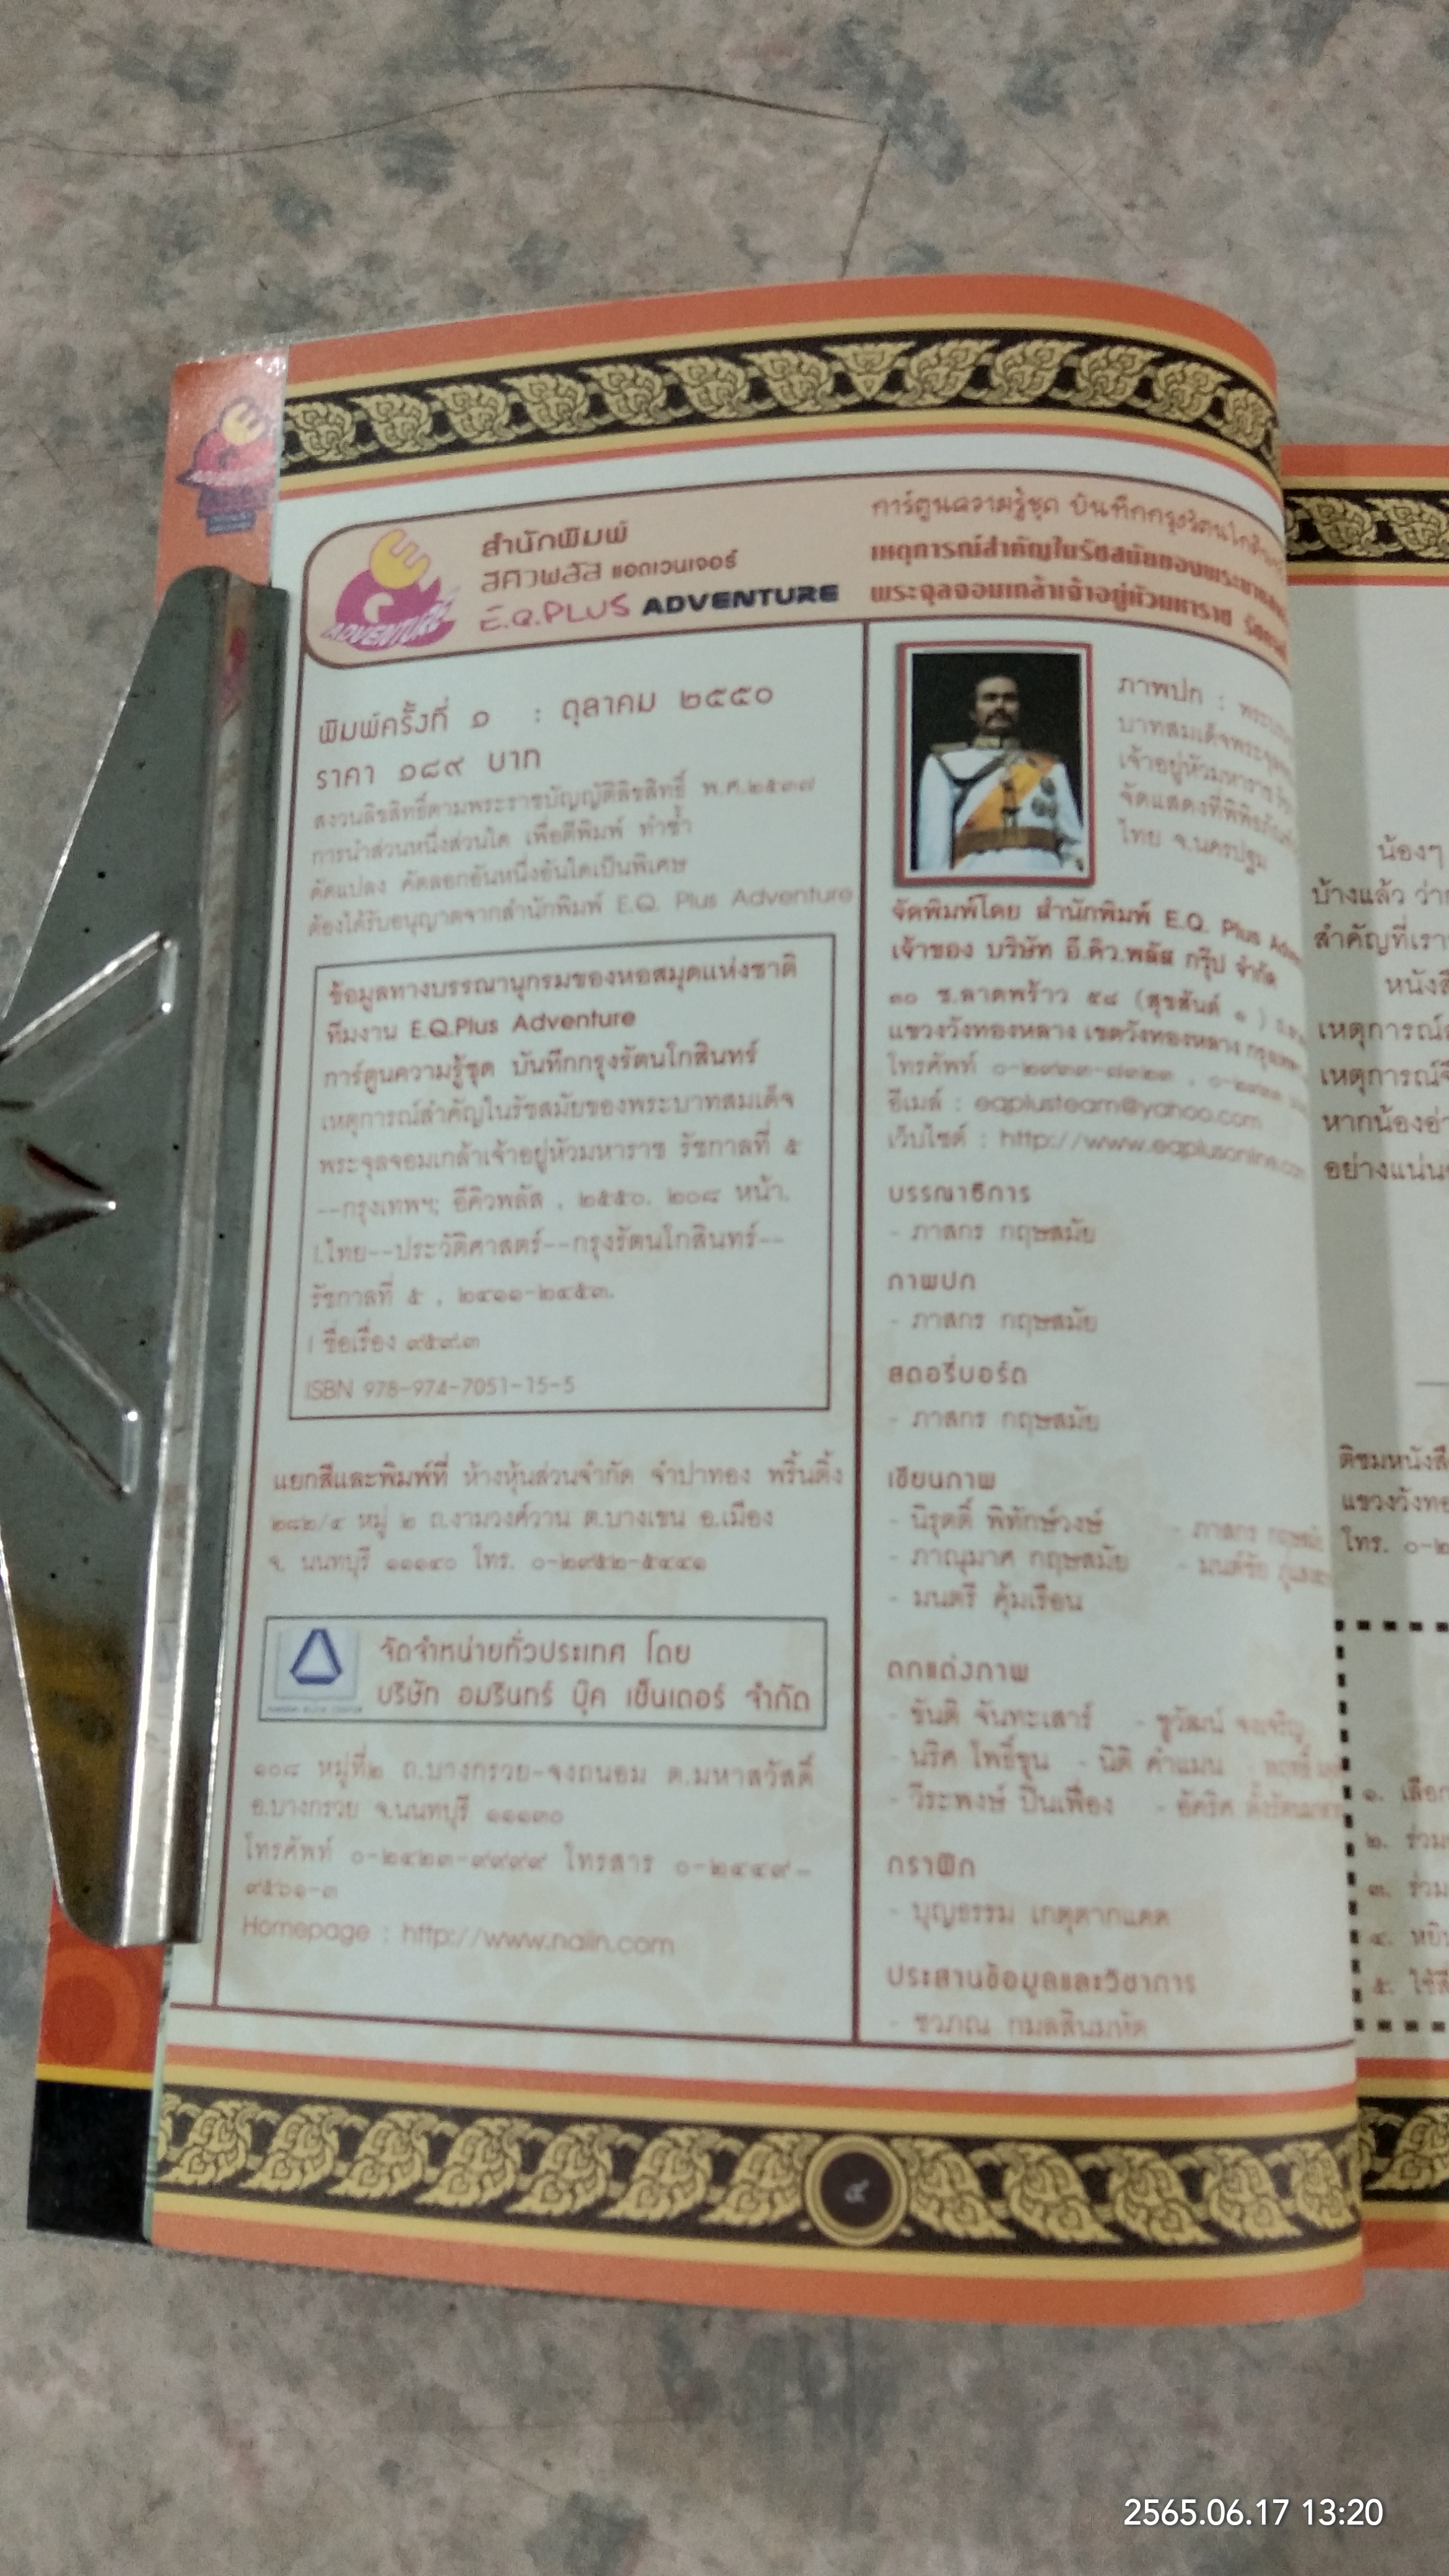 สำนักพิมพ์
อีคิวพลัส แอดเวนเจอร์
E.Q.PLUS ADVENTURE
ADVENTURE
การ์ตูนความรู้ชุด บันทึกกรุงรัตนโกสินทร์
เหตุการณ์สำคัญในรัชสมัยของพระบาท
พระจุลจอมเกล้าเจ้าอยู่หัวมหาราช
พิมพ์ครั้งที่ ๑ : ตุลาคม ๒๕๕๐
ราคา ๑๘๙ บาท
สงวนลิขสิทธิ์ตามพระราชบัญญัติลิขสิทธิ์ พ.ศ.๒๕๓๗
การนำส่วนหนึ่งส่วนใด เพื่อตีพิมพ์ ทำซ้ำ
ดัดแปลง คัดลอกอันหนึ่งอันใดเป็นพิเศษ
ต้องได้รับอนุญาตจากสำนักพิมพ์ E.Q. Plus Adventure
ข้อมูลทางบรรณานุกรมของหอสมุดแห่งชาติ
ทีมงาน E.Q.Plus Adventure
การ์ตูนความรู้ชุด บันทึกกรุงรัตนโกสินทร์
เหตุการณ์สำคัญในรัชสมัยของพระบาทสมเด็จ
พระจุลจอมเกล้าเจ้าอยู่หัวมหาราช รัชกาลที่ ๕
--กรุงเทพฯ; อีคิวพลัส , ๒๕๕๐. ๒๐๘ หน้า.
I.ไทย--ประวัติศาสตร์--กรุงรัตนโกสินทร์--
รัชกาลที่ ๕ , ๒๔๑๑-๒๔๕๓.
I ชื่อเรื่อง ๙๕๙.๓
ISBN 978-974-7051-15-5
แยกสีและพิมพ์ที่ ห้างหุ้นส่วนจำกัด จำปาทอง พริ้นติ้ง
๒๘๒/๔ หมู่ ๒ ถ.งามวงศ์วาน ต.บางเขน อ.เมือง
จ. นนทบุรี ๑๑๑๔๐ โทร. ๐-๒๙๕๒-๕๔๔๑
จัดจำหน่ายทั่วประเทศ โดย
บริษัท อมรินทร์ บุ๊ค เซ็นเตอร์ จำกัด
๑๐๘ หมู่ที่๒ ถ.บางกรวย-จงถนอม ต.มหาสวัสดิ์
อ.บางกรวย จ.นนทบุรี ๑๑๑๓๐
โทรศัพท์ ๐-๒๔๒๓-๙๙๙๙ โทรสาร ๐-๒๔๔๙-
๙๕๖๑-๓
Homepage : http://www.naiin.com
ภาพปก :
บาทสมเด็จพระจุล
เจ้าอยู่หัวมหาราช
จัดแสดงที่พิพิธภัณฑ์
ไทย จ.นครปฐม
จัดพิมพ์โดย สำนักพิมพ์ E.Q. Plus
เจ้าของ บริษัท อี.คิว.พลัส กรุ๊ป จำกัด
๓๐ ซ.ลาดพร้าว ๕๘ (สุขสันต์ ๑ )
แขวงวังทองหลาง เขตวังทองหลาง
โทรศัพท์ ๐-๒๙๓๓-๘๓๒๓ ,
อีเมล์ : eqplusteam@yahoo.com
เว็บไซต์ : http://www.eqplusonline.com
บรรณาธิการ
- ภาสกร กฤษสมัย
ภาพปก
- ภาสกร กฤษสมัย
สตอรี่บอร์ด
- ภาสกร กฤษสมัย
เขียนภาพ
- นิรุตติ์ พิทักษ์วงษ์ - ภาสกร กฤษสมัย
- ภาณุมาศ กฤษสมัย - มนต์ชัย
- มนตรี คุ้มเรือน
ตกแต่งภาพ
- ขันติ จันทะเสาร์ - ชูวัฒน์ จงเจริญ
- นริศ โพธิ์ขุน - นิติ คำแมน
- วีระพงษ์ ปิ่นเฟื่อง - อัคริศ
กราฟิก
- บุญธรรม เกตุตากแดด
ประสานข้อมูลและวิชาการ
- ชวภณ กมลสินมหัต
๔
น้องๆ
บ้างแล้ว
สำคัญที่เรา
เหตุการณ์
เหตุการณ์
หากน้องอ่า
อย่างแน่น
ติชมหนังสื
แขวงวังทอ
โทร. ๐-๒
๑. เลือก
๒. ร่วม
๓. ร่วม
๔. หยิบ
๕. ใช้สี
2565.06.17 13:20